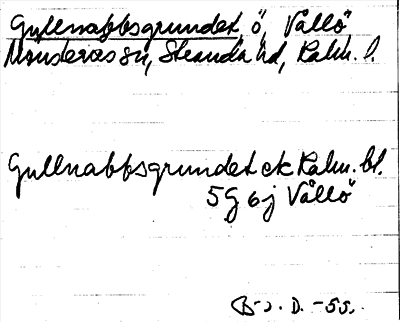 Gullnabbsgrundet, ö, Vållö
Mönsterås sn, Stranda hd, Kalm. l.
Gullnabbsgrundet ek Kalm. bl.
5G 6j Vållö